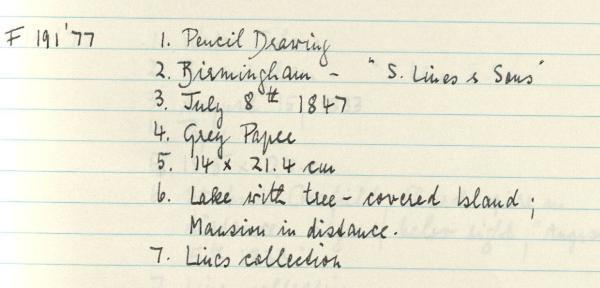 F 191'77 1. Pencil Drawing
2. Birmingham - "S. Lines & Sons"
3. July 8th 1847
4. Grey Paper
5. 14 x 21.4 cm
6. Lake with tree-covered Island;
Mansion in distance.
7. Lines collection